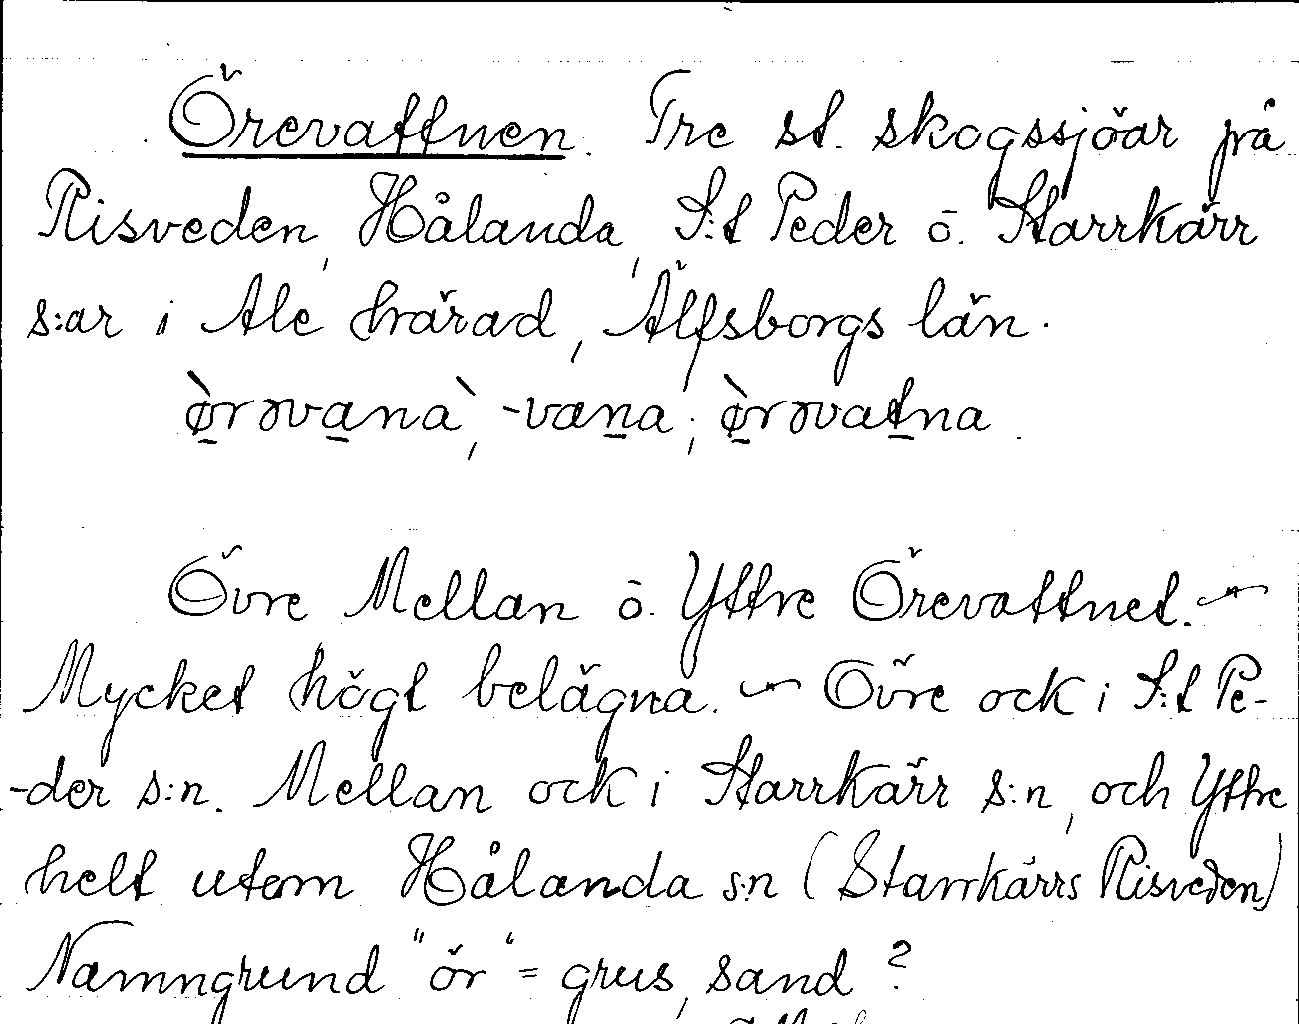 Örevattnen. Tre st. skogssjöar på
Risveden, Hålanda, S:t Peder o. Starrkärr
s:ar i Ale härad, Älfsborgs län.
ø̀rəvana, -vana; ø̀rəvatna.
Övre Mellan o. Yttre Örevattnet. —
Mycket högt belägna. — Övre ock i S:t Pe-
-der s:n. Mellan ock i Starrkärr s:n, och Yttre
helt utom Hålanda s:n (Starrkärrs Risveden)
Namngrund "ör" = grus, sand?